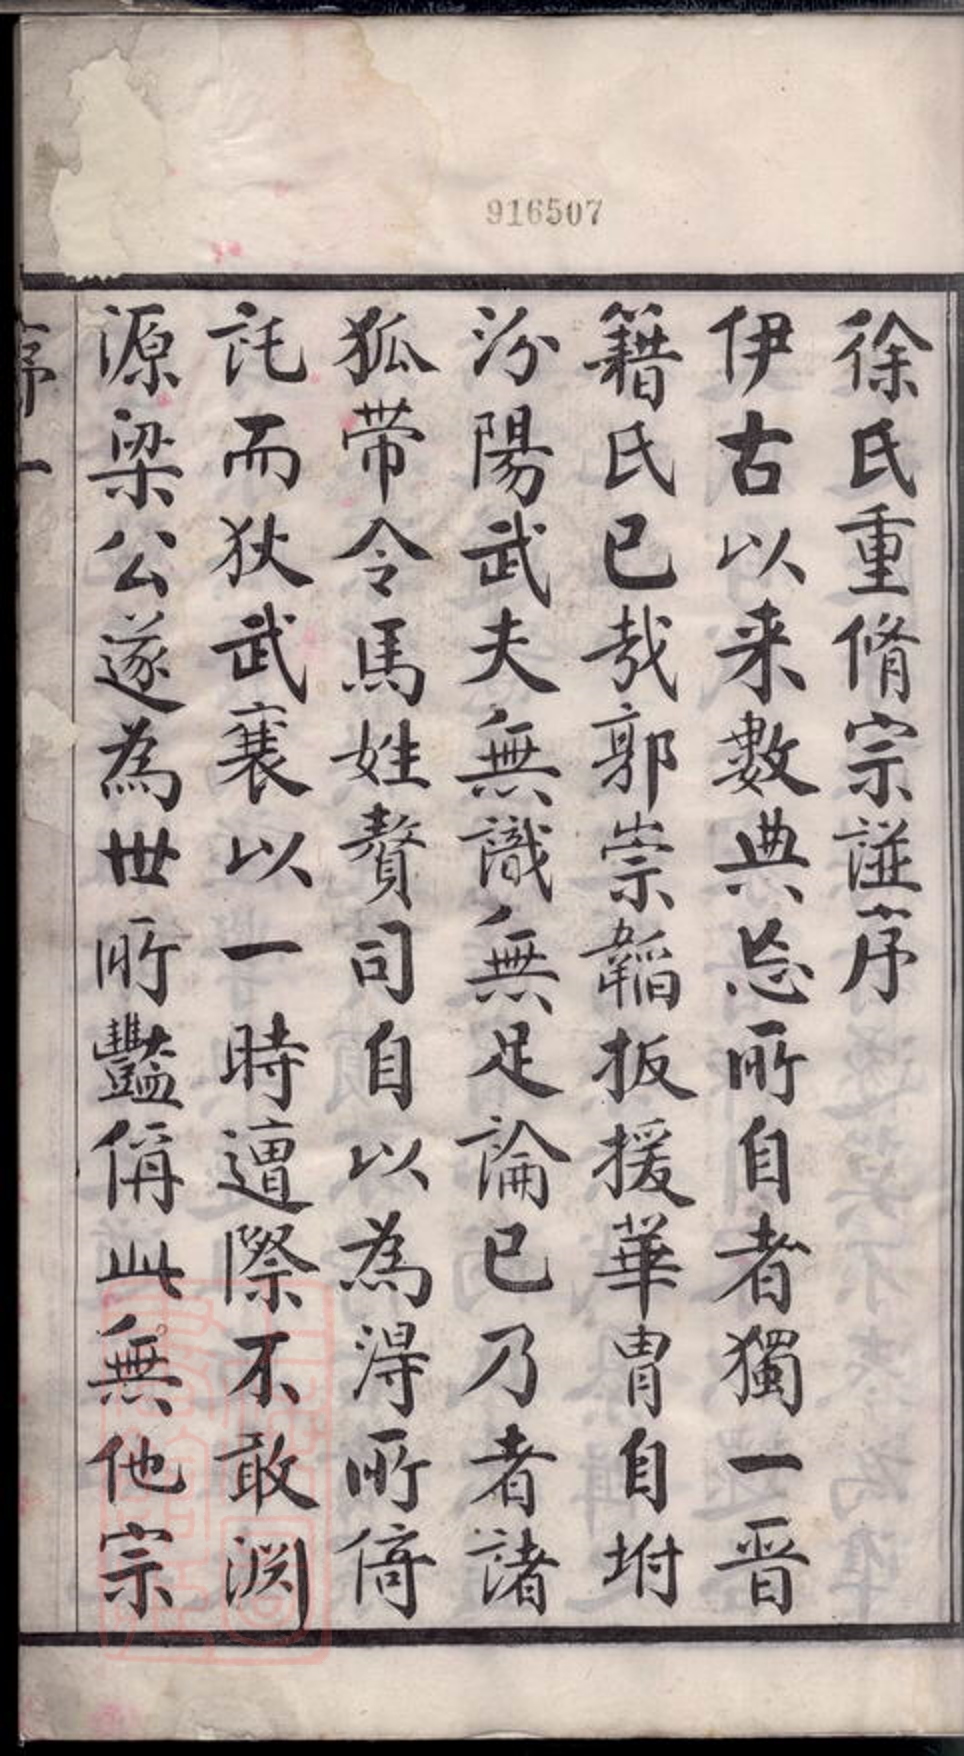 916507
徐氏重脩宗譜序
伊古以来數典忘所自者獨一晋
籍氏已哉郭崇韜扳援華胄自坿
汾陽武夫無識無足論已乃者諸
狐帶令馬姓贅司自以為淂所倚
託而狄武襄以一時遭際不敢渊
源梁公遂為世所豔偁此無他宗
序一